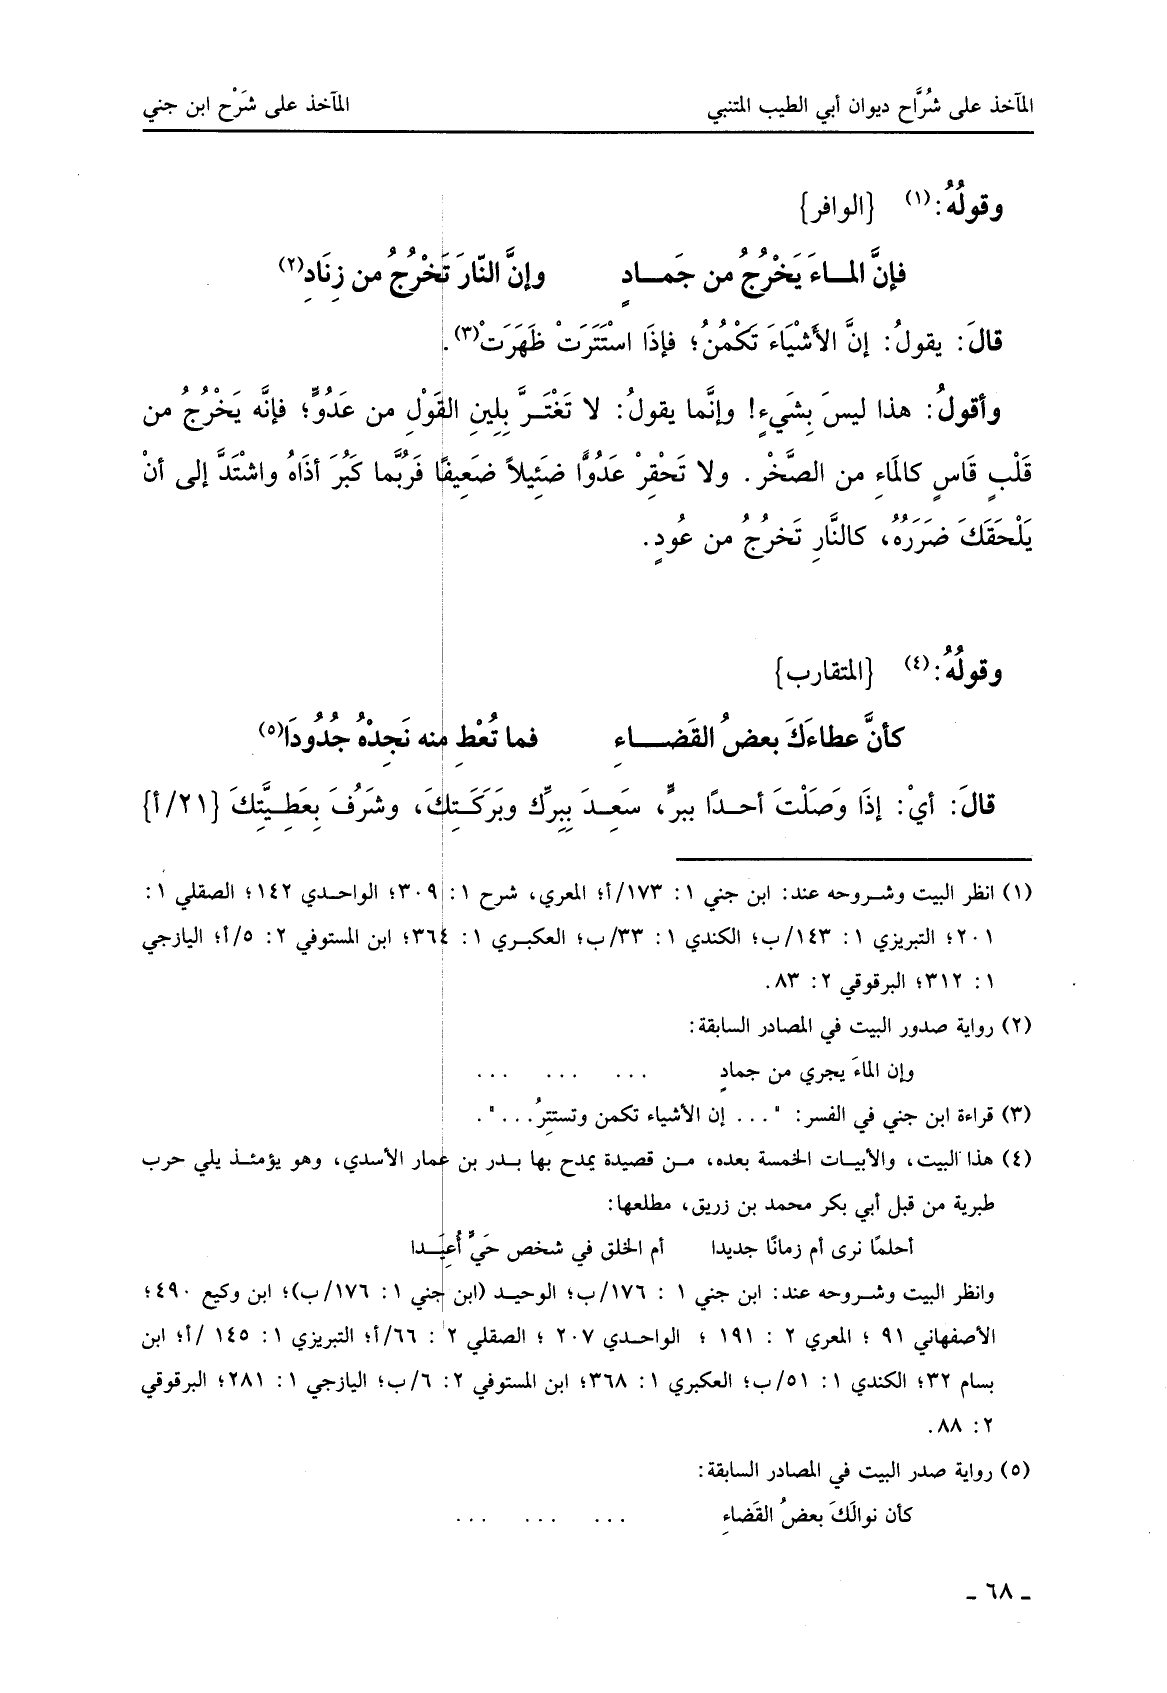 المآخذ على شُرَّاح ديوان أبي الطيب المتنبي المآخذ على شَرْح ابن جني
وقولُهُ:(١) {الوافر}
فإنَّ المـاءَ يَخْرُجُ من جَمـادٍ وإنَّ النّارَ تَخْرُجُ من زِنَادِ(٢)
قالَ: يقولُ: إنَّ الأَشْيَاءَ تَكْمُنُ؛ فإذَا اسْتَتَرَتْ ظَهَرَتْ(٣).
وأقولُ: هذا ليسَ بِشَيءٍ! وإنَّما يقولُ: لا تَغْتَـرَّ بِلِينِ القَوْلِ من عَدُوٍّ؛ فإنَّه يَخْرُجُ من
قَلْبٍ قَاسٍ كالمَاءِ من الصَّخْرِ. ولا تَحْقِرْ عَدُوًّا ضَئِيلاً ضَعِيفًا فَرُبَّما كَبُرَ أذَاهُ واشْتَدَّ إلى أنْ
يَلْحَقَكَ ضَرَرُهُ، كالنَّارِ تَخرُجُ من عُودٍ.
وقولُهُ:(٤) {المتقارب}
كأنَّ عطاءَكَ بعضُ القَضـاءِ فما تُعْطِ منه نَجِدْهُ جُدُودَا(٥)
قالَ: أيْ: إذَا وَصَلْتَ أحـدًا ببرٍّ، سَعِـدَ بِبِرِّك وبَرَكَـتِكَ، وشَرُفَ بِعَطِيَّتِكَ {٢١/أ}
(١) انظر البيت وشـروحه عند: ابن جني ١: ١٧٣/أ؛ المعري، شرح ١: ٣٠٩؛ الواحـدي ١٤٢؛ الصقلي ١:
٢٠١؛ التبريزي ١: ١٤٣/ب؛ الكندي ١: ٣٣/ب؛ العكبـري ١: ٣٦٤؛ ابن المستوفي ٢: ٥/أ؛ اليازجي
١: ٣١٢؛ البرقوقي ٢: ٨٣.
(٢) رواية صدور البيت في المصادر السابقة:
وإن الماءَ يجري من جمادٍ ... ... ...
(٣) قراءة ابن جني في الفسر: "... إن الأشياء تكمن وتستترُ...".
(٤) هذا البيت، والأبيـات الخمسة بعده، مـن قصيدة يمدح بها بـدر بن عمار الأسدي، وهو يؤمئـذ يلي حرب
طبرية من قبل أبي بكر محمد بن زريق، مطلعها:
أحلمًا نرى أم زمانًا جديدا أم الخلق في شخص حَيٍّ أُعِيَـدا
وانظر البيت وشـروحه عند: ابن جني ١ : ١٧٦/ب؛ الوحيـد (ابن جني ١: ١٧٦/ب)؛ ابن وكيع ٤٩٠؛
الأصفهاني ٩١ ؛ المعري ٢ : ١٩١ ؛ الواحـدي ٢٠٧ ؛ الصقلي ٢ : ٦٦/أ؛ التبريزي ١: ١٤٥ /أ؛ ابن
بسام ٣٢؛ الكندي ١: ٥١/ب؛ العكبري ١: ٣٦٨؛ ابن المستوفي ٢: ٦/ب؛ اليازجي ١: ٢٨١؛ البرقوقي
٢: ٨٨.
(٥) رواية صدر البيت في المصادر السابقة:
كأن نوالَكَ بعضُ القَضاءِ ... ... ...
ـ ٦٨ ـ